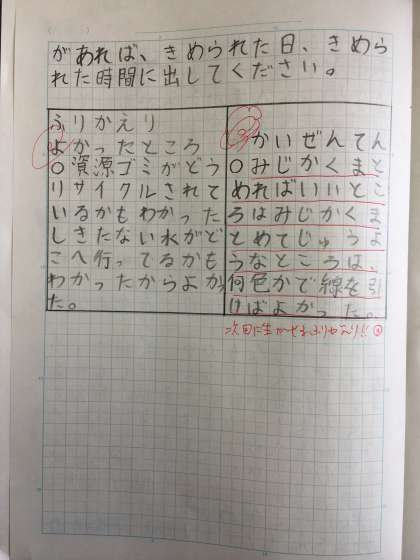 があれば、きめられた日、きめら
れた時間に出してください。
ふりかえり
よかったところ
○資源ゴミがどう
リサイクルされて
いるかもわかった
しきたない水がど
こへ行ってるかも
わかったからよかっ
た。
かいぜんてん
○みじかくまと
めればいいとこ
ろはみじかくま
とめてじゅうよ
うなところは、
何色かで線を引
けばよかった。
次回に生かせるふりかえり!!